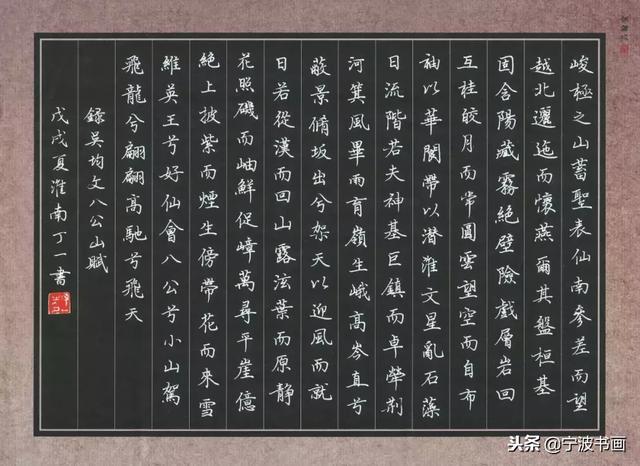 峻極之山蓄聖表仙南參差而望
越北邐迤而懷燕爾其盤桓基
固含陽藏霧絕壁險戲層岩回
互桂皎月而常圓雲望空而自布
袖以華閬帶以潛淮文星亂石藻
日流階若夫神基巨鎮而卓犖荊
河箕風畢雨育嶺生峨高岑直兮
蔽景脩坂出兮架天以迎風而就
日若從漢而回山露泫葉而原靜
花照磯而岫鮮促嶂萬尋平崖億
絕上披紫而煙生傍帶花而來雪
維英王兮好仙會八公兮小山駕
飛龍兮翩翩高馳兮飛天
錄吳均文八公山賦
戊戌夏淮南丁一書
头条@宁波书画